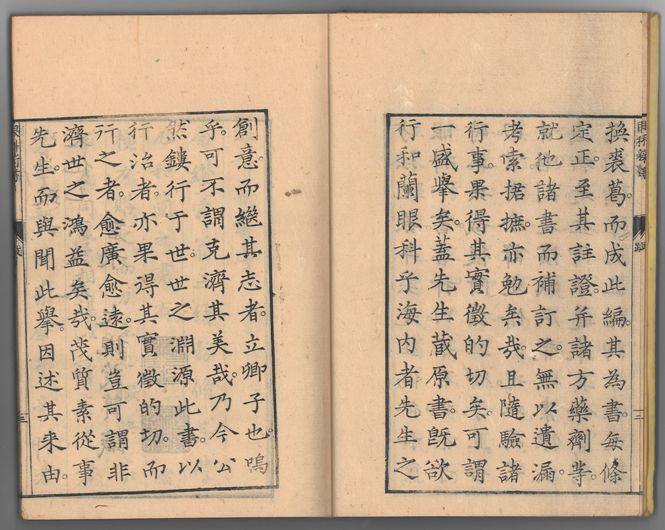 換裘葛。而成此編。其為書。每條
定正。至其註證。并諸方藥劑等。
就他諸書。而補訂之。無以遺漏。
考索據摭。亦勉矣哉。且隨驗諸
行事。果得其實徵的切矣。可謂
一盛擧矣。蓋先生蕆原書。既欲
行和蘭眼科乎海内者。先生之
創意。而繼其志者。立卿子也。嗚
乎。可不謂克濟其美哉。乃今公
然鏤行于世。世之淵源此書。以
行治者。亦果得其實徵的切。而
行之者。愈廣愈遠。則豈可謂非
濟世之鴻益矣哉。茂質素從事
先生。而與聞此擧。因述其来由。
跋
二
三